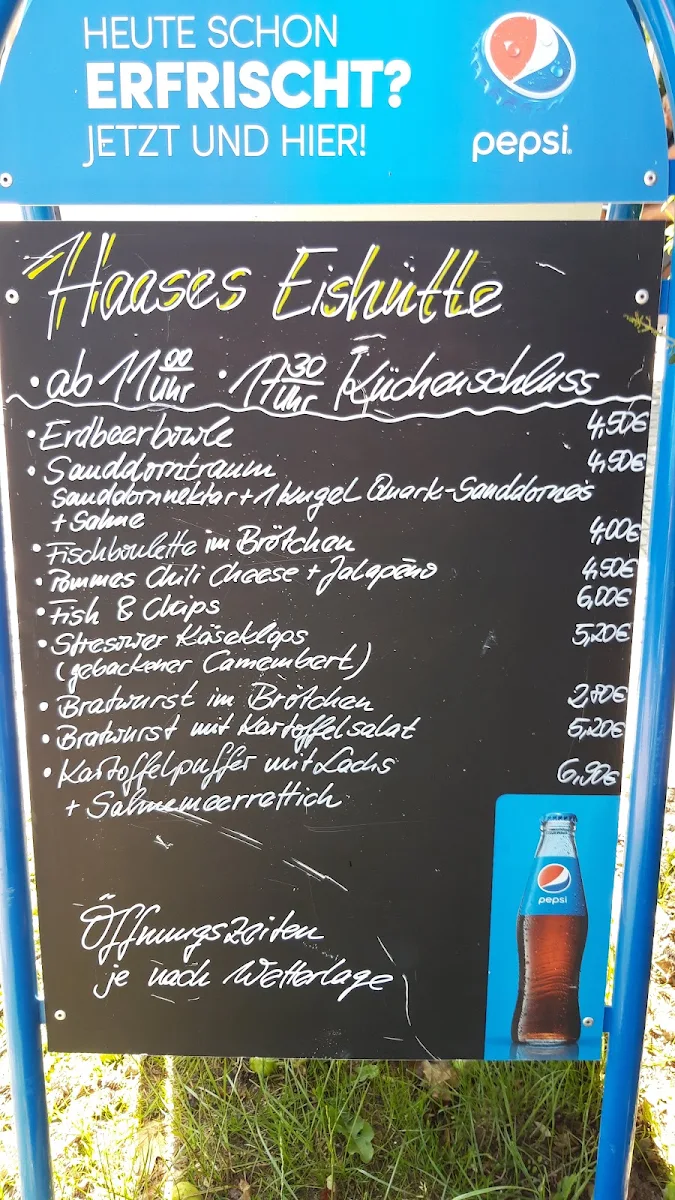 HEUTE SCHON
ERFRISCHT?
JETZT UND HIER!
pepsi
Haases Eishütte
• ab 11 00 Uhr • 17 30 Uhr Küchenschluss
• Erdbeerbowle 4,50€
• Sanddorntraum 4,50€
Sanddornnektar + 1 Kugel Quark-Sanddorneis
+ Sahne
• Fischboulette im Brötchen 4,00€
• Pommes Chili Cheese + Jalapeño 4,50€
• Fish & Chips 6,00€
• Stresower Käseklops 5,20€
(gebackener Camembert)
• Bratwurst im Brötchen 2,80€
• Bratwurst mit Kartoffelsalat 5,20€
• Kartoffelpuffer mit Lachs 6,90€
+ Sahnemeerrettich
Öffnungszeiten
je nach Wetterlage
pepsi